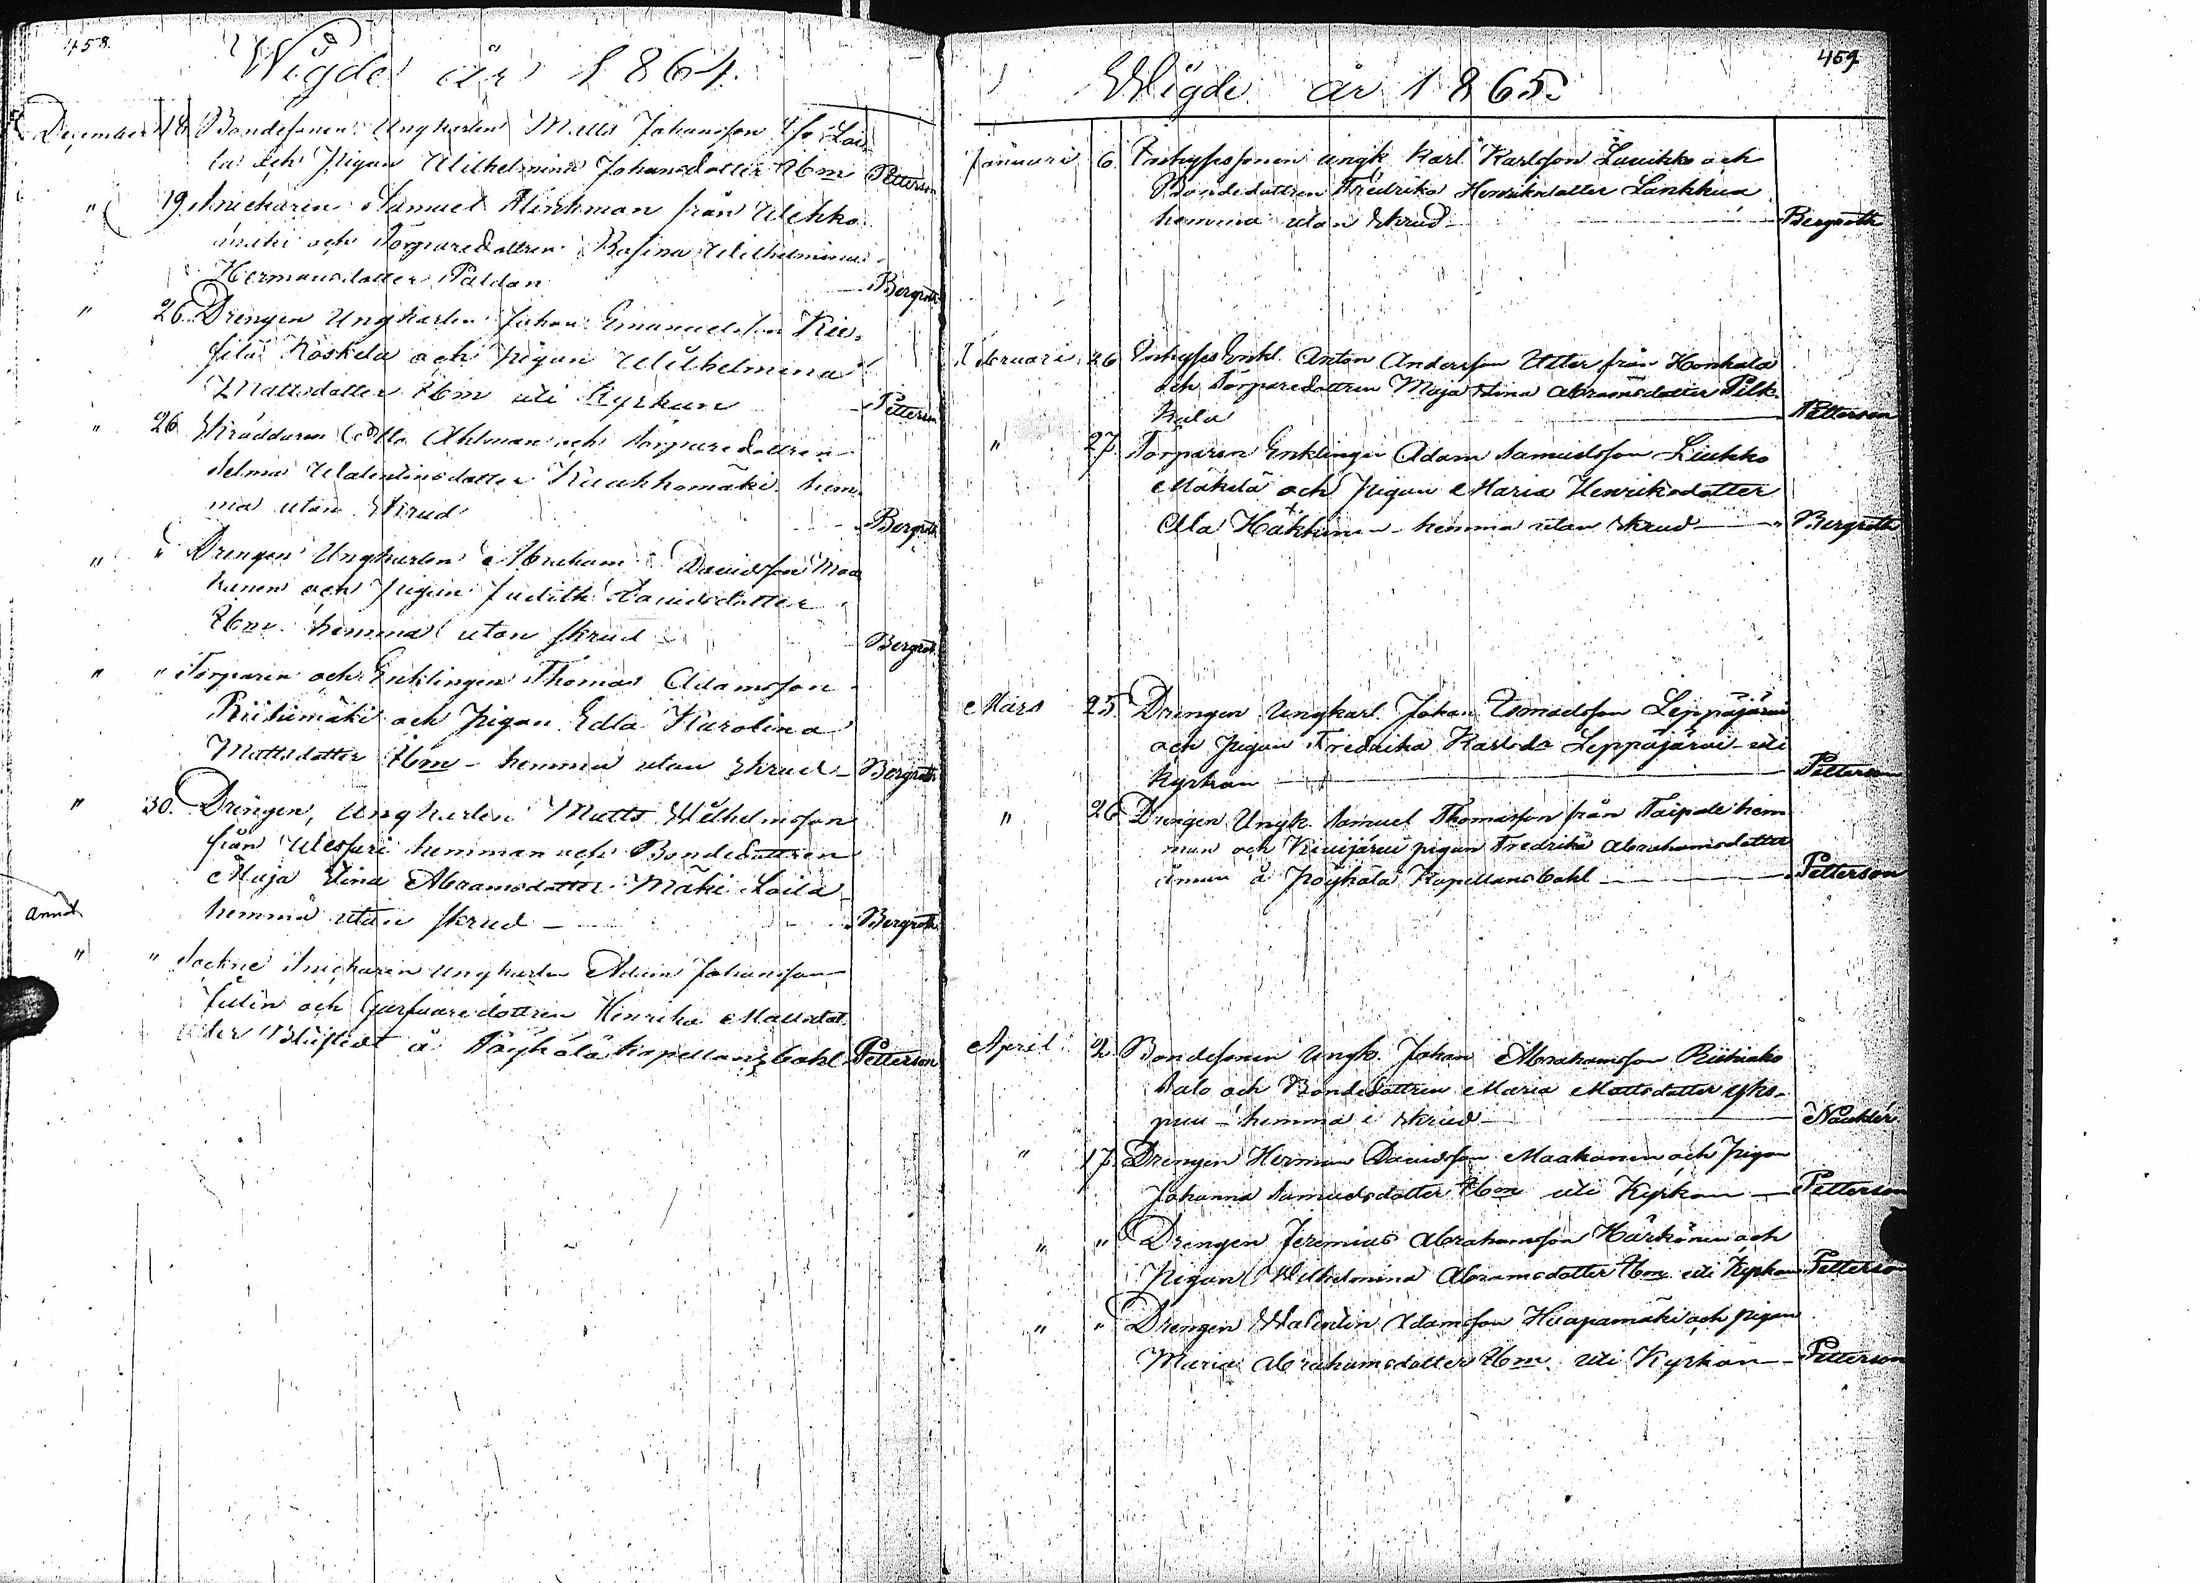 458.
Wigde år 1864.
December 18 Bondesonen Ungkarlen Matts Johansson Loi
la och Pigan Wilhelmina Johansdotter Ibm Petterson
" 19 Snickaren Samuel Flinkman från Wehka
mäki och Torparedottren Rosina Wilhelmina
Hermansdotter Paldan Bergroth
" 26 Drengen Ungkarlen Johan Emanuelsson Kii-
filä Koskela och Pigan Wilhelmina
Mattsdotter Ibm uti Kyrkan Petterson
" 26 Skräddaren Ahlman och Torparedottren
Selma Walentinsdotter Kuukkomäki hem-
ma utan Skrud Bergroth
" " Drengen Ungkarlen Abraham Davidsson Maa
kunen och Pigan Judith Davidsdotter
Ibm. hemma utan skrud Bergroth
" " Torparen och Enklingen Thomas Adamsson
Riihimäki och Pigan Edla Karolina
Mattsdotter Ibm - hemma utan skrud - Bergroth
" 30. Drengen, Ungkarlen Matts Wilhelmsson
från hemman och Bondedottren
Maja Stina Abramsdotter Mäki Loila
annat
hemma utan skrud - Bergroth
" " Sockne Snickaren Ungkarlen Johansson
och dottren Henrika Mattsdot
ter å Pöyhölä Kapellansbohl Petterson
459
Wigde år 1865.
Januari 6. Inhyssonen ungk. Karl Karlsson Luukko och
Bondedottren Fredrika Henriksdotter Lankkua
hemma utan Skrud Bergroth
Februari 26 Inhyses Enkl. Anton Andersson Utter från Honkala
och Torparedottren Maja Stina Abramsdotter Pelk-
kala Petterson
" 27. Torparen Enklingen Adam Samuelsson Liukko
Mäkelä och Pigan Maria Henriksdotter
Ala Häkkinen - hemma utan skrud - Bergroth
Mars 25. Drengen Ungkarl. Johan Esmaelsson Leppäjärvi
och Pigan Fredrika Karlsdr Leppäjärvi - uti
Kyrkan Petterson
" 26 Drengen Ungk. Samuel Thomasson från Taipale hem
man och Kivijärvi pigan Fredrika Abrahamsdotter
å Pöyhölä Kapellansbohl Petterson
April 2. Bondesonen Ungk. Johan Abrahamsson Riihiaho
Salo och Bondedottren Maria Mattsdotter Yks-
puu - hemma i skrud Nauklér
" 17. Drengen Herman Davidsson Maakunen och Pigan
Johanna Samuelsdotter Ibm uti Kyrkan - Petterson
" " Drengen Jeremias Abrahamsson Härkönen och
Pigan Wilhelmina Abramsdotter Ibm. uti Kyrkan Petterson
" " Drengen Walentin Adamsson Haapamäki och pigan
Maria Abrahamsdotter Ibm. uti Kyrkan - Petterson